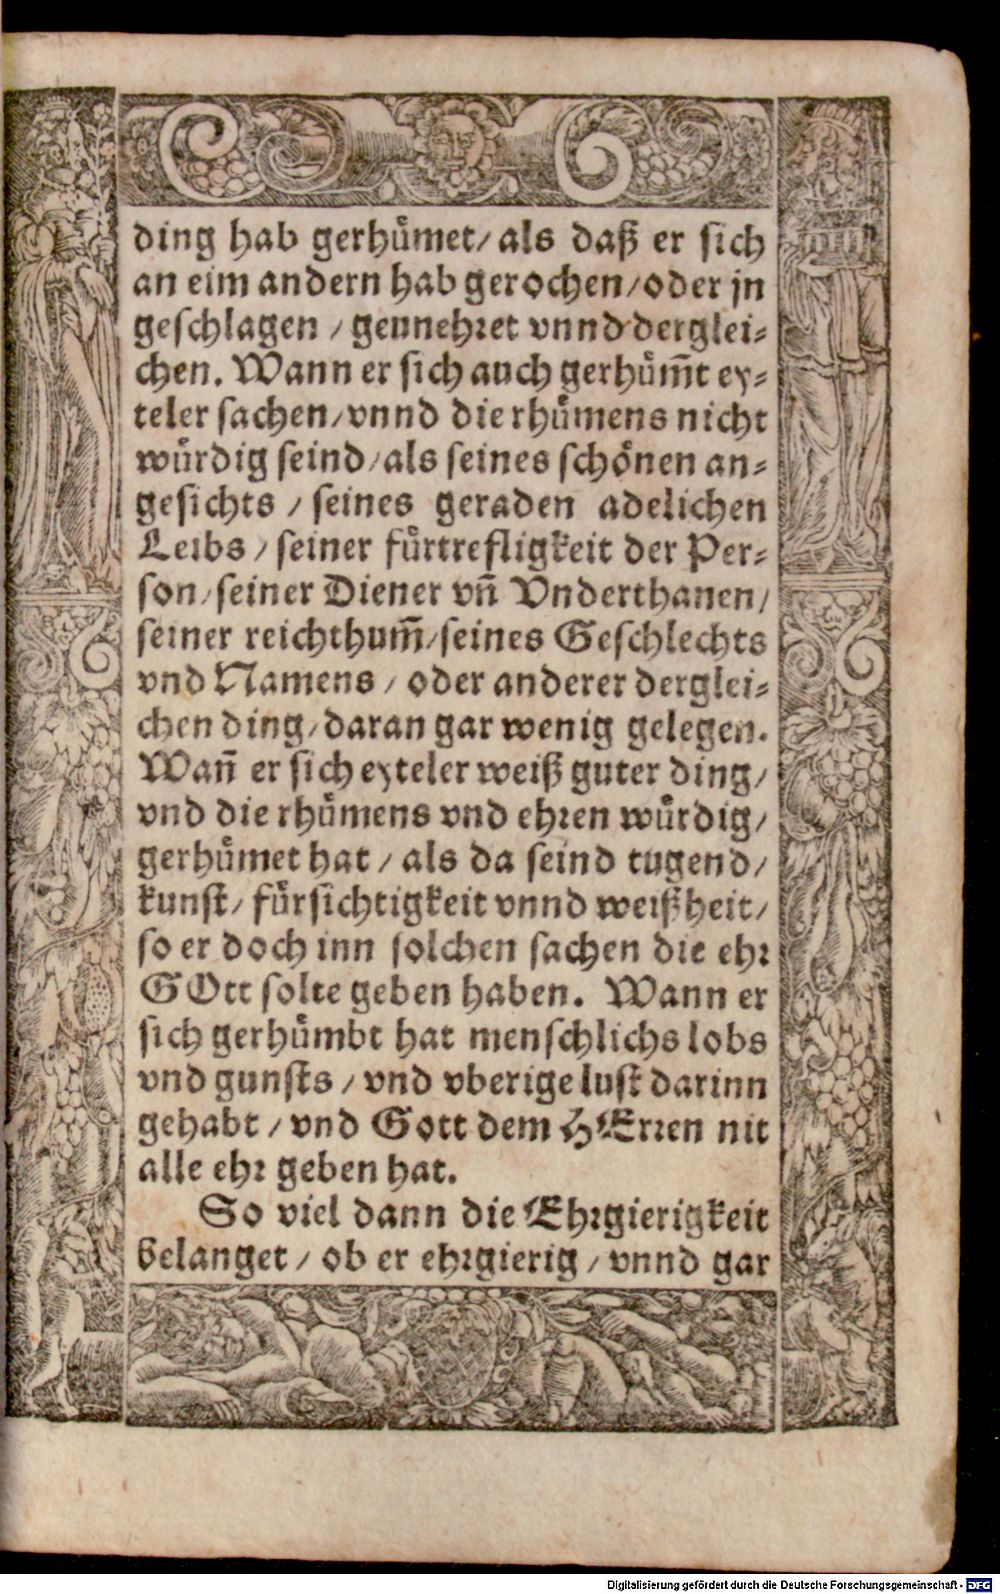 ding hab gerhuͤmet/ als daß er sich
an eim andern hab gerochen/ oder jn
geschlagen / geunehret vnnd derglei⸗
chen. Wann er sich auch gerhuͤm̃t ey⸗
teler sachen/ vnnd die rhuͤmens nicht
wuͤrdig seind/ als seines schoͤnen an⸗
gesichts / seines geraden adelichen
Leibs / seiner fuͤrtrefligkeit der Per⸗
son/ seiner Diener vñ Vnderthanen/
seiner reichthum̃/ seines Geschlechts
vnd Namens / oder anderer derglei⸗
chen ding/ daran gar wenig gelegen.
Wañ er sich eyteler weiß guter ding/
vnd die rhuͤmens vnd ehren wuͤrdig/
gerhuͤmet hat / als da seind tugend/
kunst/ fuͤrsichtigkeit vnnd weißheit/
so er doch inn solchen sachen die ehr
GOtt solte geben haben. Wann er
sich gerhuͤmbt hat menschlichs lobs
vnd gunsts / vnd vberige lust darinn
gehabt / vnd Gott dem HErren nit
alle ehr geben hat.
So viel dann die Ehrgierigkeit
belanget / ob er ehrgierig / vnnd gar
Digitalisierung gefördert durch die Deutsche Forschungsgemeinschaft - DFG